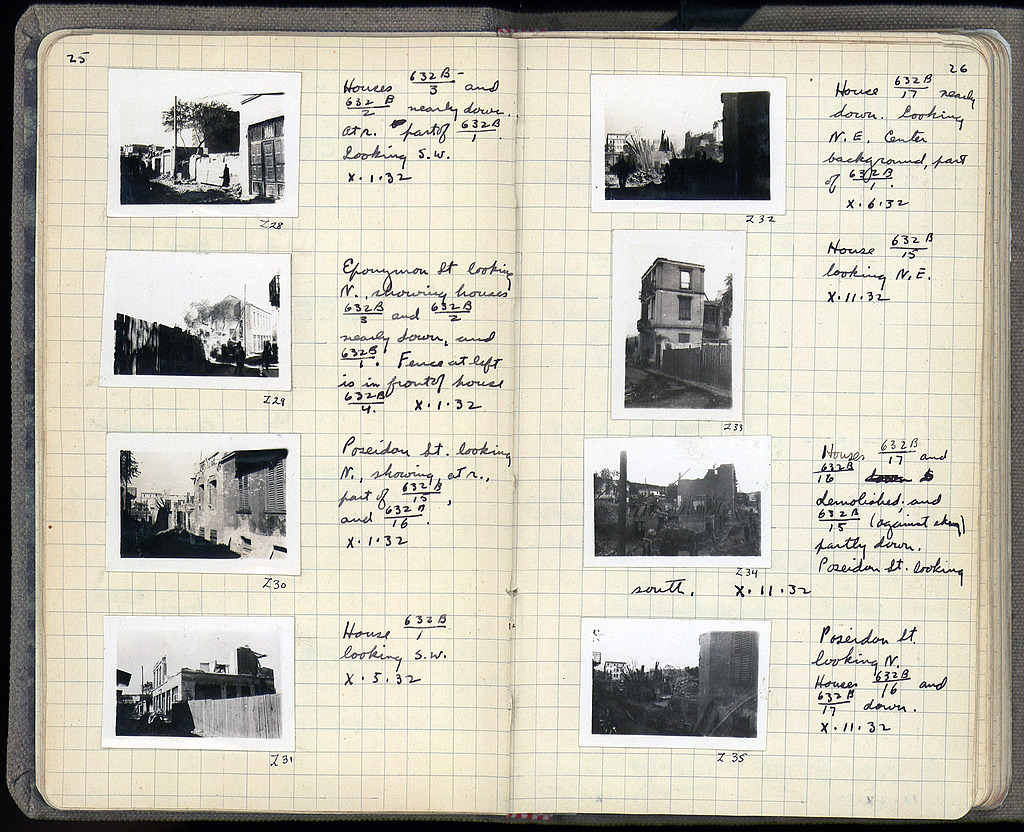 25
Houses 632 B/3 and
632 B/2 nearly down.
At r. part of 632 B/1.
Looking S.W.
X.1.32
Z28
Eponymon St looking
N., showing houses
632 B/3 and 632 B/2
nearly down, and
632 B/1. Fence at left
is in front of house
632 B/4. X.1.32
Z29
Poseidon St. looking
N., showing at r.,
part of 632 B/15,
and 632 B/16.
X.1.32
Z30
House 632 B/1
looking S.W.
X.5.32
Z31
26
House 632 B/17 nearly
down. Looking
N.E. Center
background, part
of 632 B/1.
X.6.32
Z32
House 632 B/15
looking N.E.
X.11.32
Z33
Houses 632 B/17 and
632 B/16
demolished; and
632 B/15 (against sky)
partly down.
Poseidon St. looking
south. X.11.32
Z34
Poseidon St.
looking N.
Houses 632 B/16 and
632 B/17 down.
X.11.32
Z35